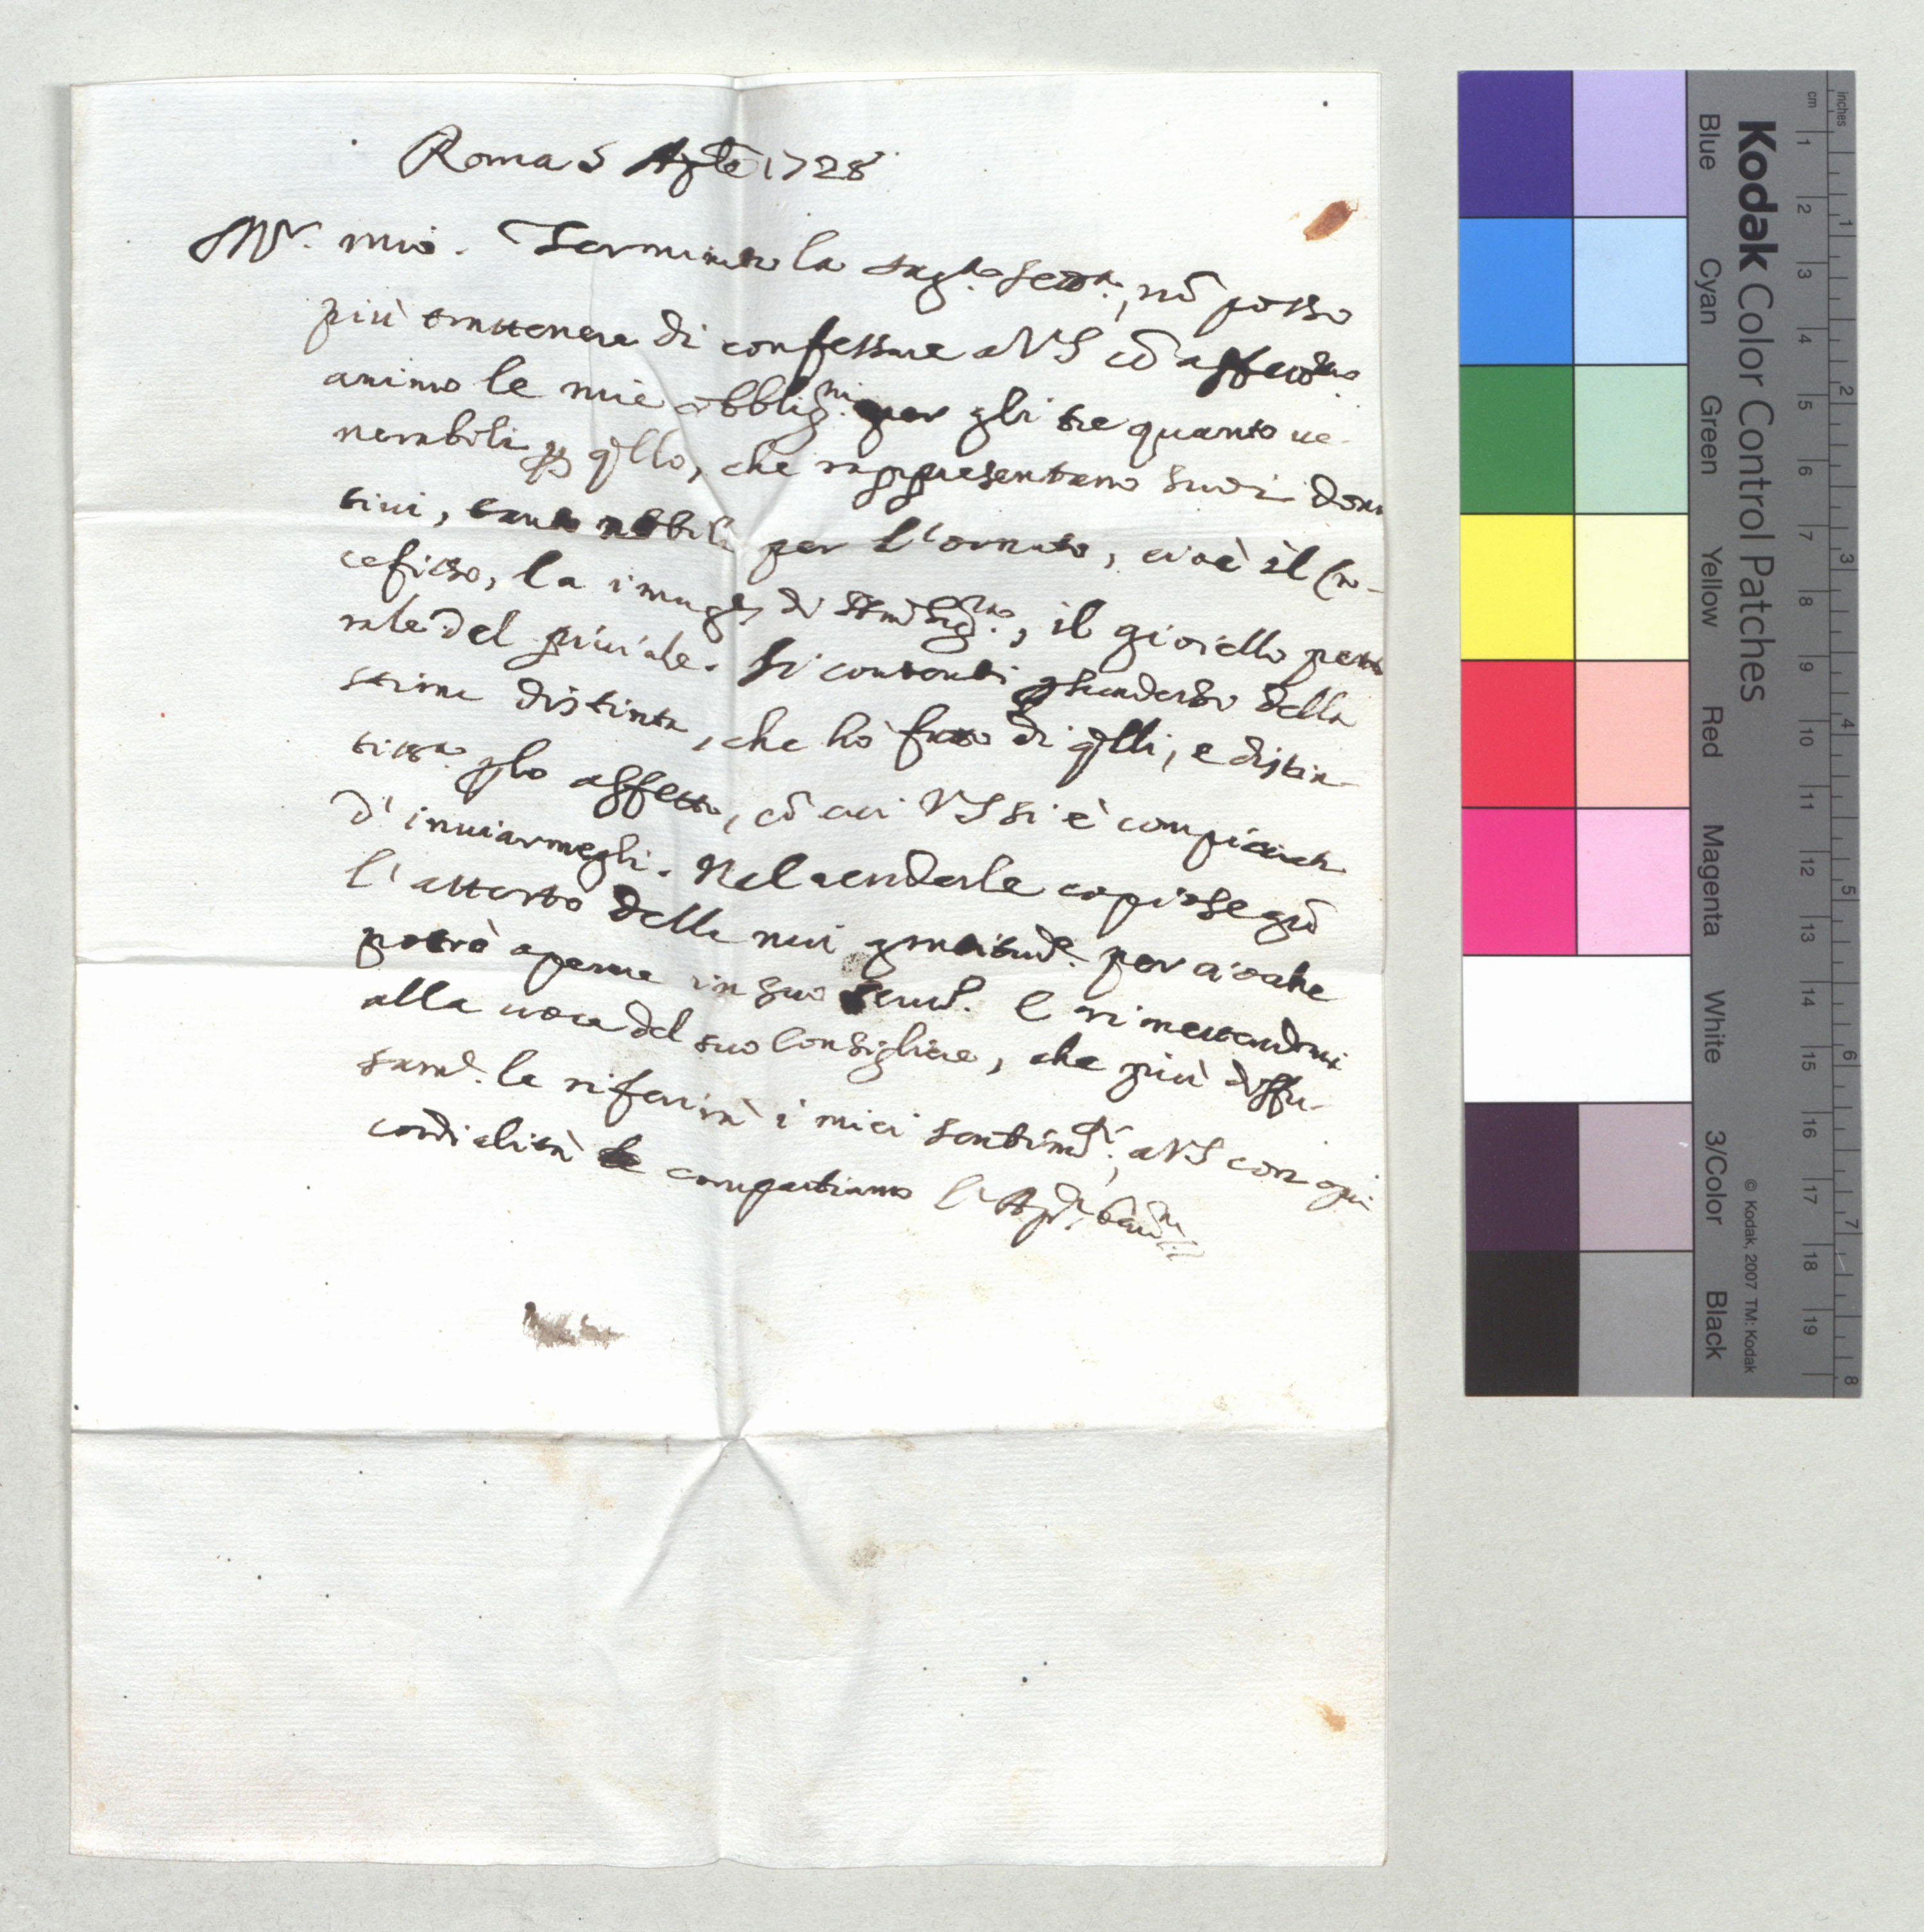 Roma 5 Ap̃le 1728
Mr. mio. Terminata la sagra. settna., nõ posso
più trattenere di confessare a VS cõ affettmo.
animo le mie obbligni. per gli tre quanto ue-
nerabili p qllo, che rappresentano suoi dona
tiui, tanto nobili per l'ornato, cioè il Cro-
cefisso, la imagẽ di il gioiello petto
rale del piuiale. Si contenti psuaderso della
stima distinta, che hò fatto di qlli, e distin-
tissa. p lo affetto, cõ cui VS si è compiaciuta
d'inuiarmegli. Nel renderle copiose gr̃
l'attesto della mia gratitude. per ciò che
potrò operare in suo seruo. E rimettendomi
alla uoce del suo Consigliere, che più diffu-
samte. le riferirà i miei sentimti., a VS con ogni
cordialità compartiamo l'Apca. benne.
Kodak Color Control Patches
Blue Cyan Green Yellow Red Magenta White 3/Color Black
© Kodak, 2007 TM: Kodak
cm 1 2 3 4 5 6 7 8 9 10 11 12 13 14 15 16 17 18 19
inches 1 2 3 4 5 6 7 8